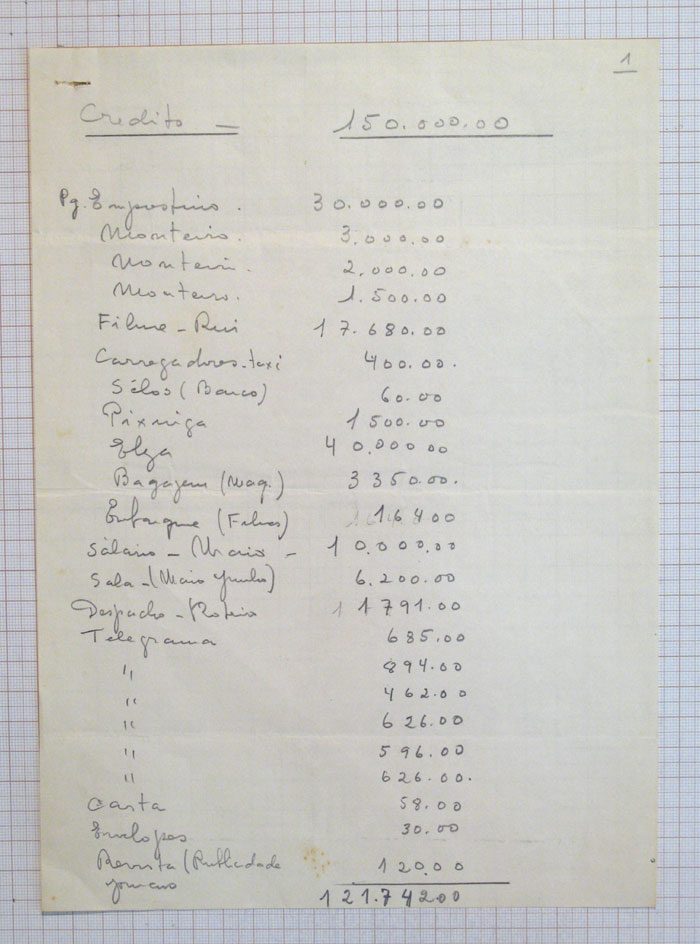 1
Credito — 150.000.00
Pg. Emprestimo . 30.000.00
Monteiro . 3.000.00
Monteiro . 2.000.00
Monteiro . 1.500.00
Filme - Rui 17.680.00
Carregadores - taxi 400.00.
Sêlos ( Banco ) 60.00
Pixniga 1500.00
Elza 40.000 00
Bagagem ( Maq. ) 3350.00.
Embarque ( Filmes ) 164 00
Salário - Maio - 10.000.00
Sala - ( Maio Junho ) 6.200.00
Despacho - Roteiro 1791.00
Telegrama 685.00
" 894.00
" 462.00
" 626.00
" 596.00
" 626.00.
Carta 58.00
Envelopes 30.00
Revista ( Publicidade 120.00
121.742 00